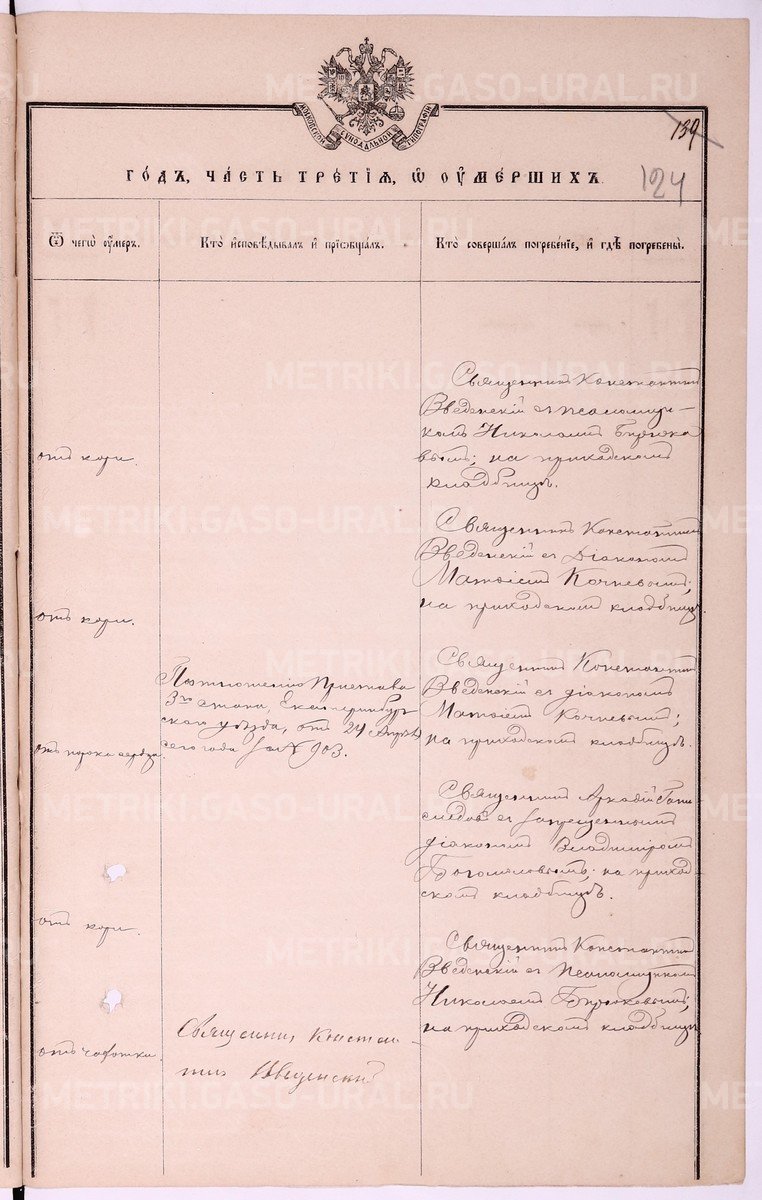 МОСКОВСКОЙ СѴНОДАЛЬНОЙ ТИПОГРАФІИ
139
124
ГО́ДЪ, ЧА́СТЬ ТРЕ́ТІѦ, Ѡ҆ ОУ҆МЕ́РШИХЪ.
Ѿ чегѡ̀ оу҆́меръ.
Кто̀ и҆сповѣ́дывалъ и҆ прїѻбща́лъ.
Кто̀ соверша́лъ погребе́нїе, и҆ гдѣ̀ погребены̀.
отъ кори.
Священникъ Константинъ
Введенскій съ псаломщи-
комъ Николаемъ Бирюко
вымъ; на приходскомъ
кладбищѣ.
отъ кори.
Священникъ Константинъ
Введенскій съ діакономъ
Матѳіемъ Кочневымъ;
на приходскомъ кладбищѣ.
отъ порока сердца.
По отношенію Пристава
3го стана, Екатеринбур
скаго уѣзда, отъ 24 Апрѣля
сего года за № 903.
Священникъ Константинъ
Введенскій съ діакономъ
Матѳіемъ Кочневымъ;
на приходскомъ кладбищѣ.
отъ кори.
Священникъ Аркадій
съ запрещеннымъ
діакономъ Владиміромъ
Богомоловымъ; на приход-
скомъ кладбищѣ.
отъ чахотки.
Священникъ Констан-
тинъ Введенскій
Священникъ Константинъ
Введенскій съ Псаломщикомъ
Николаемъ Бирюковымъ;
на приходскомъ кладбищѣ
METRIKI.GASO-URAL.RU